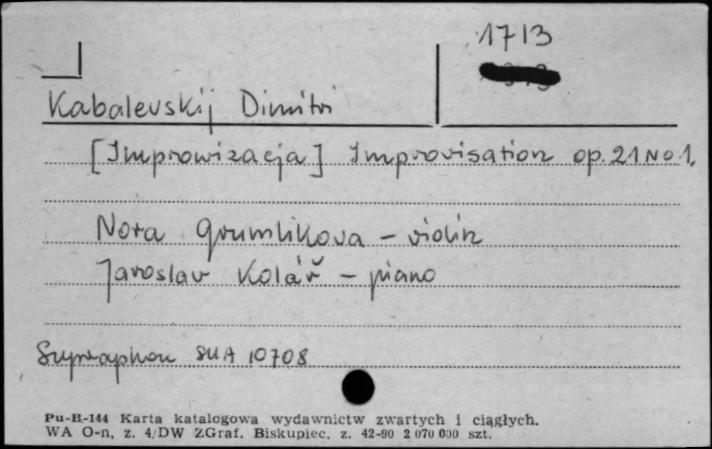 1713
Kabalevskij Dimitri
[Improwizacja] Improvisation op. 21 No 1.
Nora Grumlikova – violin
Jaroslav Kolář – piano
Supraphon SUA 10708
Pu-B-144 Karta katalogowa wydawnictw zwartych i ciągłych.
WA O-n, z. 4/DW ZGraf. Biskupiec, z. 42-90 2 070 000 szt.